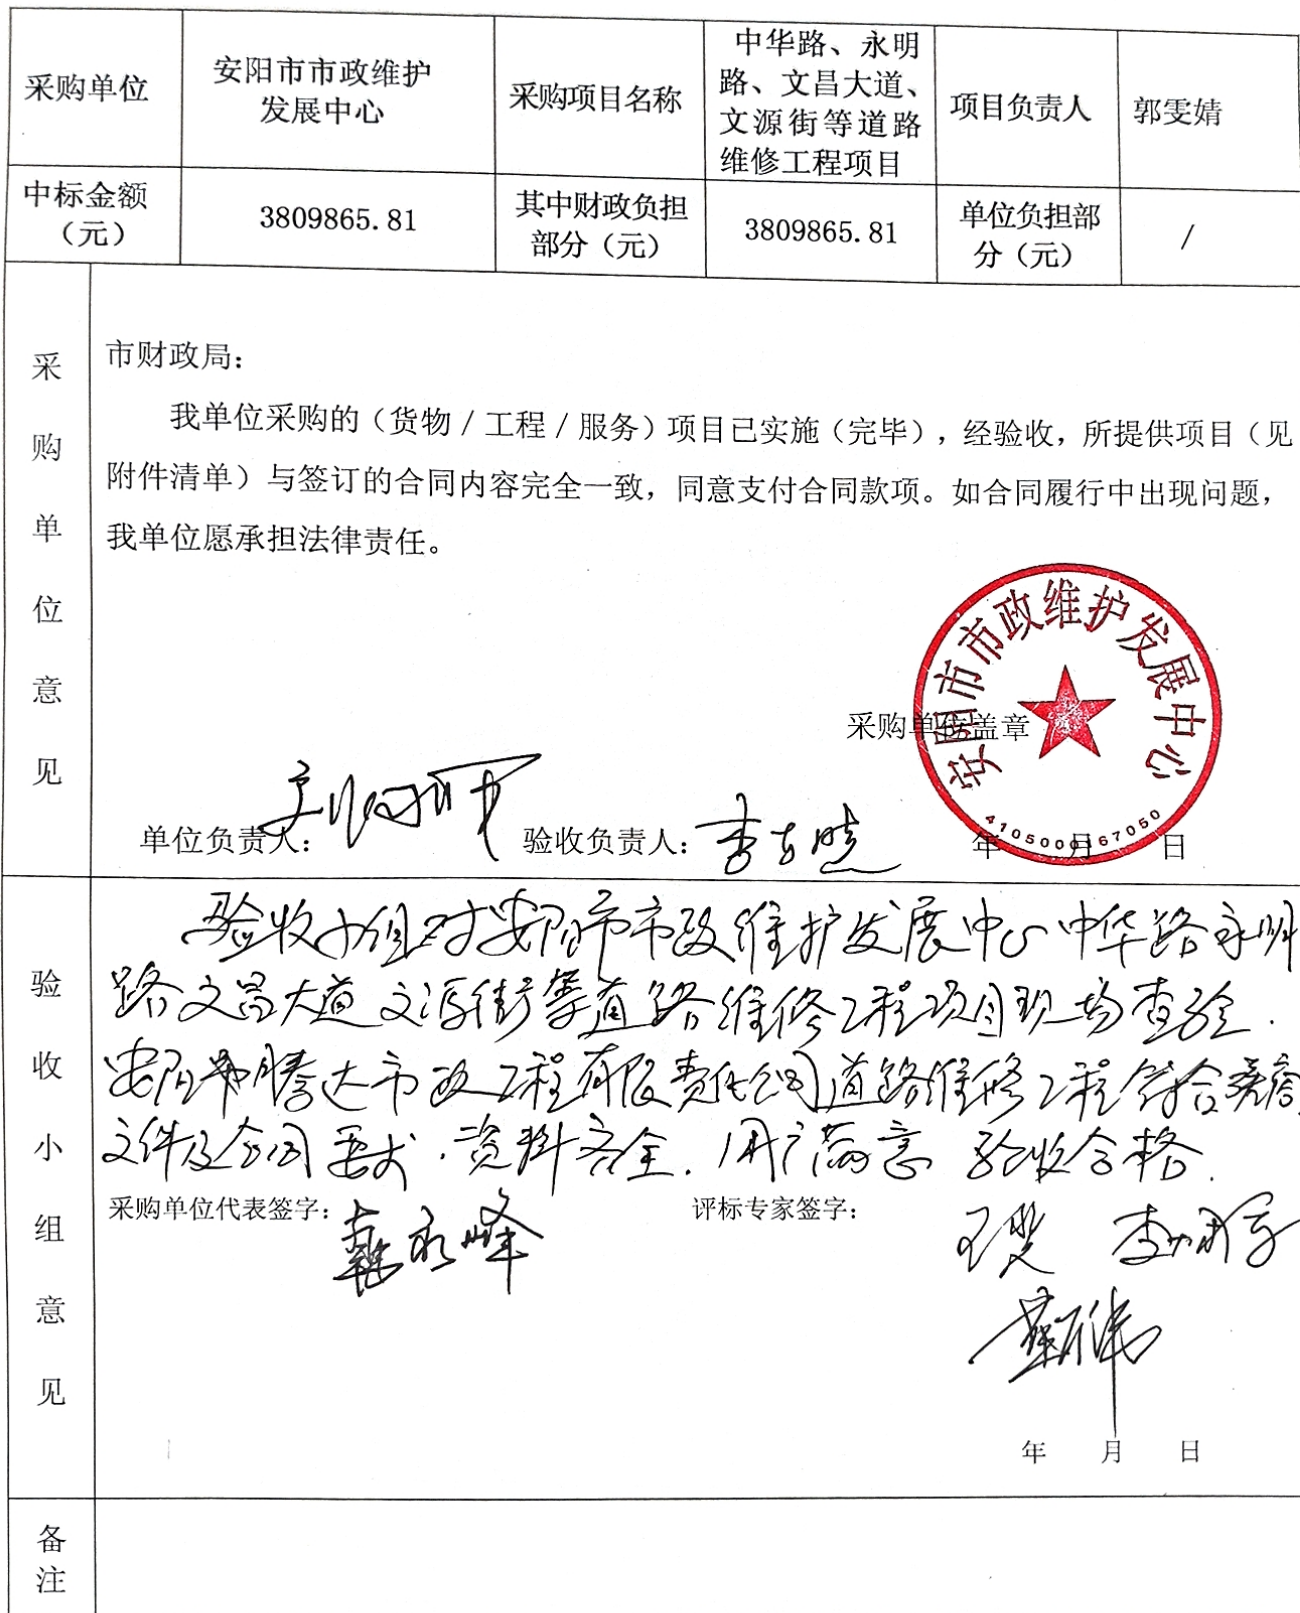 采购单位
安阳市市政维护
发展中心
采购项目名称
中华路、永明
路、文昌大道、
文源街等道路
维修工程项目
项目负责人
郭雯婧
中标金额
（元）
3809865.81
其中财政负担
部分（元）
3809865.81
单位负担部
分（元）
/
采购单位意见
市财政局：
我单位采购的（货物/工程/服务）项目已实施（完毕），经验收，所提供项目（见
附件清单）与签订的合同内容完全一致，同意支付合同款项。如合同履行中出现问题，
我单位愿承担法律责任。
安阳市市政维护发展中心
4105000167050
采购单位盖章
单位负责人：
验收负责人：
年 月 日
验收小组意见
验收小组对安阳市市政维护发展中心中华路永明
路文昌大道文源街等道路维修工程项目现场查验.
安阳市腾达市政工程有限责任公司道路维修工程符合
文件及合同要求.资料齐全.用户满意 验收合格.
采购单位代表签字：
评标专家签字：
年 月 日
备注